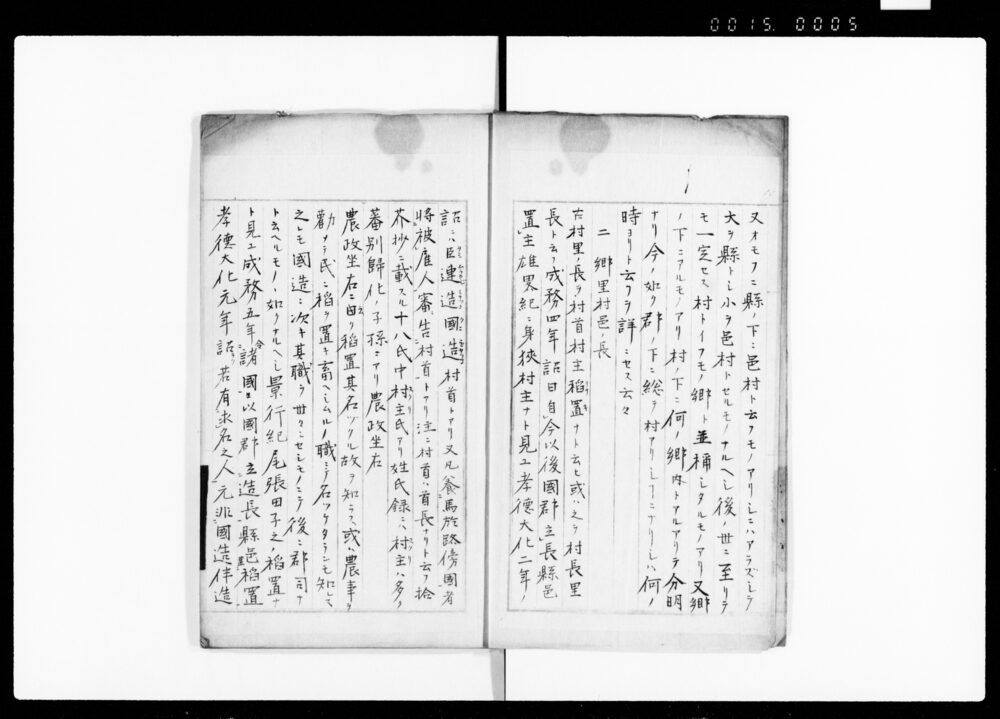 0015.0005
又オモフニ縣ノ下ニ邑村ト云フモノアリシニハアラズシテ
大ヲ縣トシ小ヲ邑村トセルモノナルヘシ後ノ世ニ至リテ
モ一定セス村トイフモノ郷ト並稱シタルモノアリ又郷
ノ下ニアルモノアリ村ノ下ニ何ノ郷内トアルアリテ分明
ナリ今ノ如ク郡ノ下ニ総テ村アリシヿニナリシハ何ノ
時ヨリト云フヲ詳ニセス云々
二 郷里村邑ノ長
古村里ノ長ヲ村首村主稲置ナト云ヒ或ハ之ヲ村長里
長ト云フ成務四年詔曰自今以後國郡立長縣邑
置主雄畧紀ニ身狹村主ナト見エ孝德大化二年ノ
詔ニハ臣連造國造村首トアリ又凡養馬於路傍國者
將被雇人審告村首トアリ注ニ村首ハ首長ナリト云フ拾
芥抄ニ載スル十八氏中村主氏アリ姓氏録ニハ村主ハ多ク
蕃別歸化ノ子孫ニアリ農政坐右
農政坐右ニ曰ク稲置其名ツクル故ヲ知ラス或ハ農事ヲ
勸メテ民ニ稲ヲ置キ畜ヘシムルノ職ニテ名ツケタランモ知レス
之レモ國造ニ次キ其職ヲ世々ニセシモノニテ後ニ郡司ナ
ト云ヘルモノノ如クナルヘシ景行紀尾張田子之稲置ナ
ト見エ成務五年令諸國以國郡立造長縣邑稲置
孝德大化元年詔若有求名之人元非國造伴造